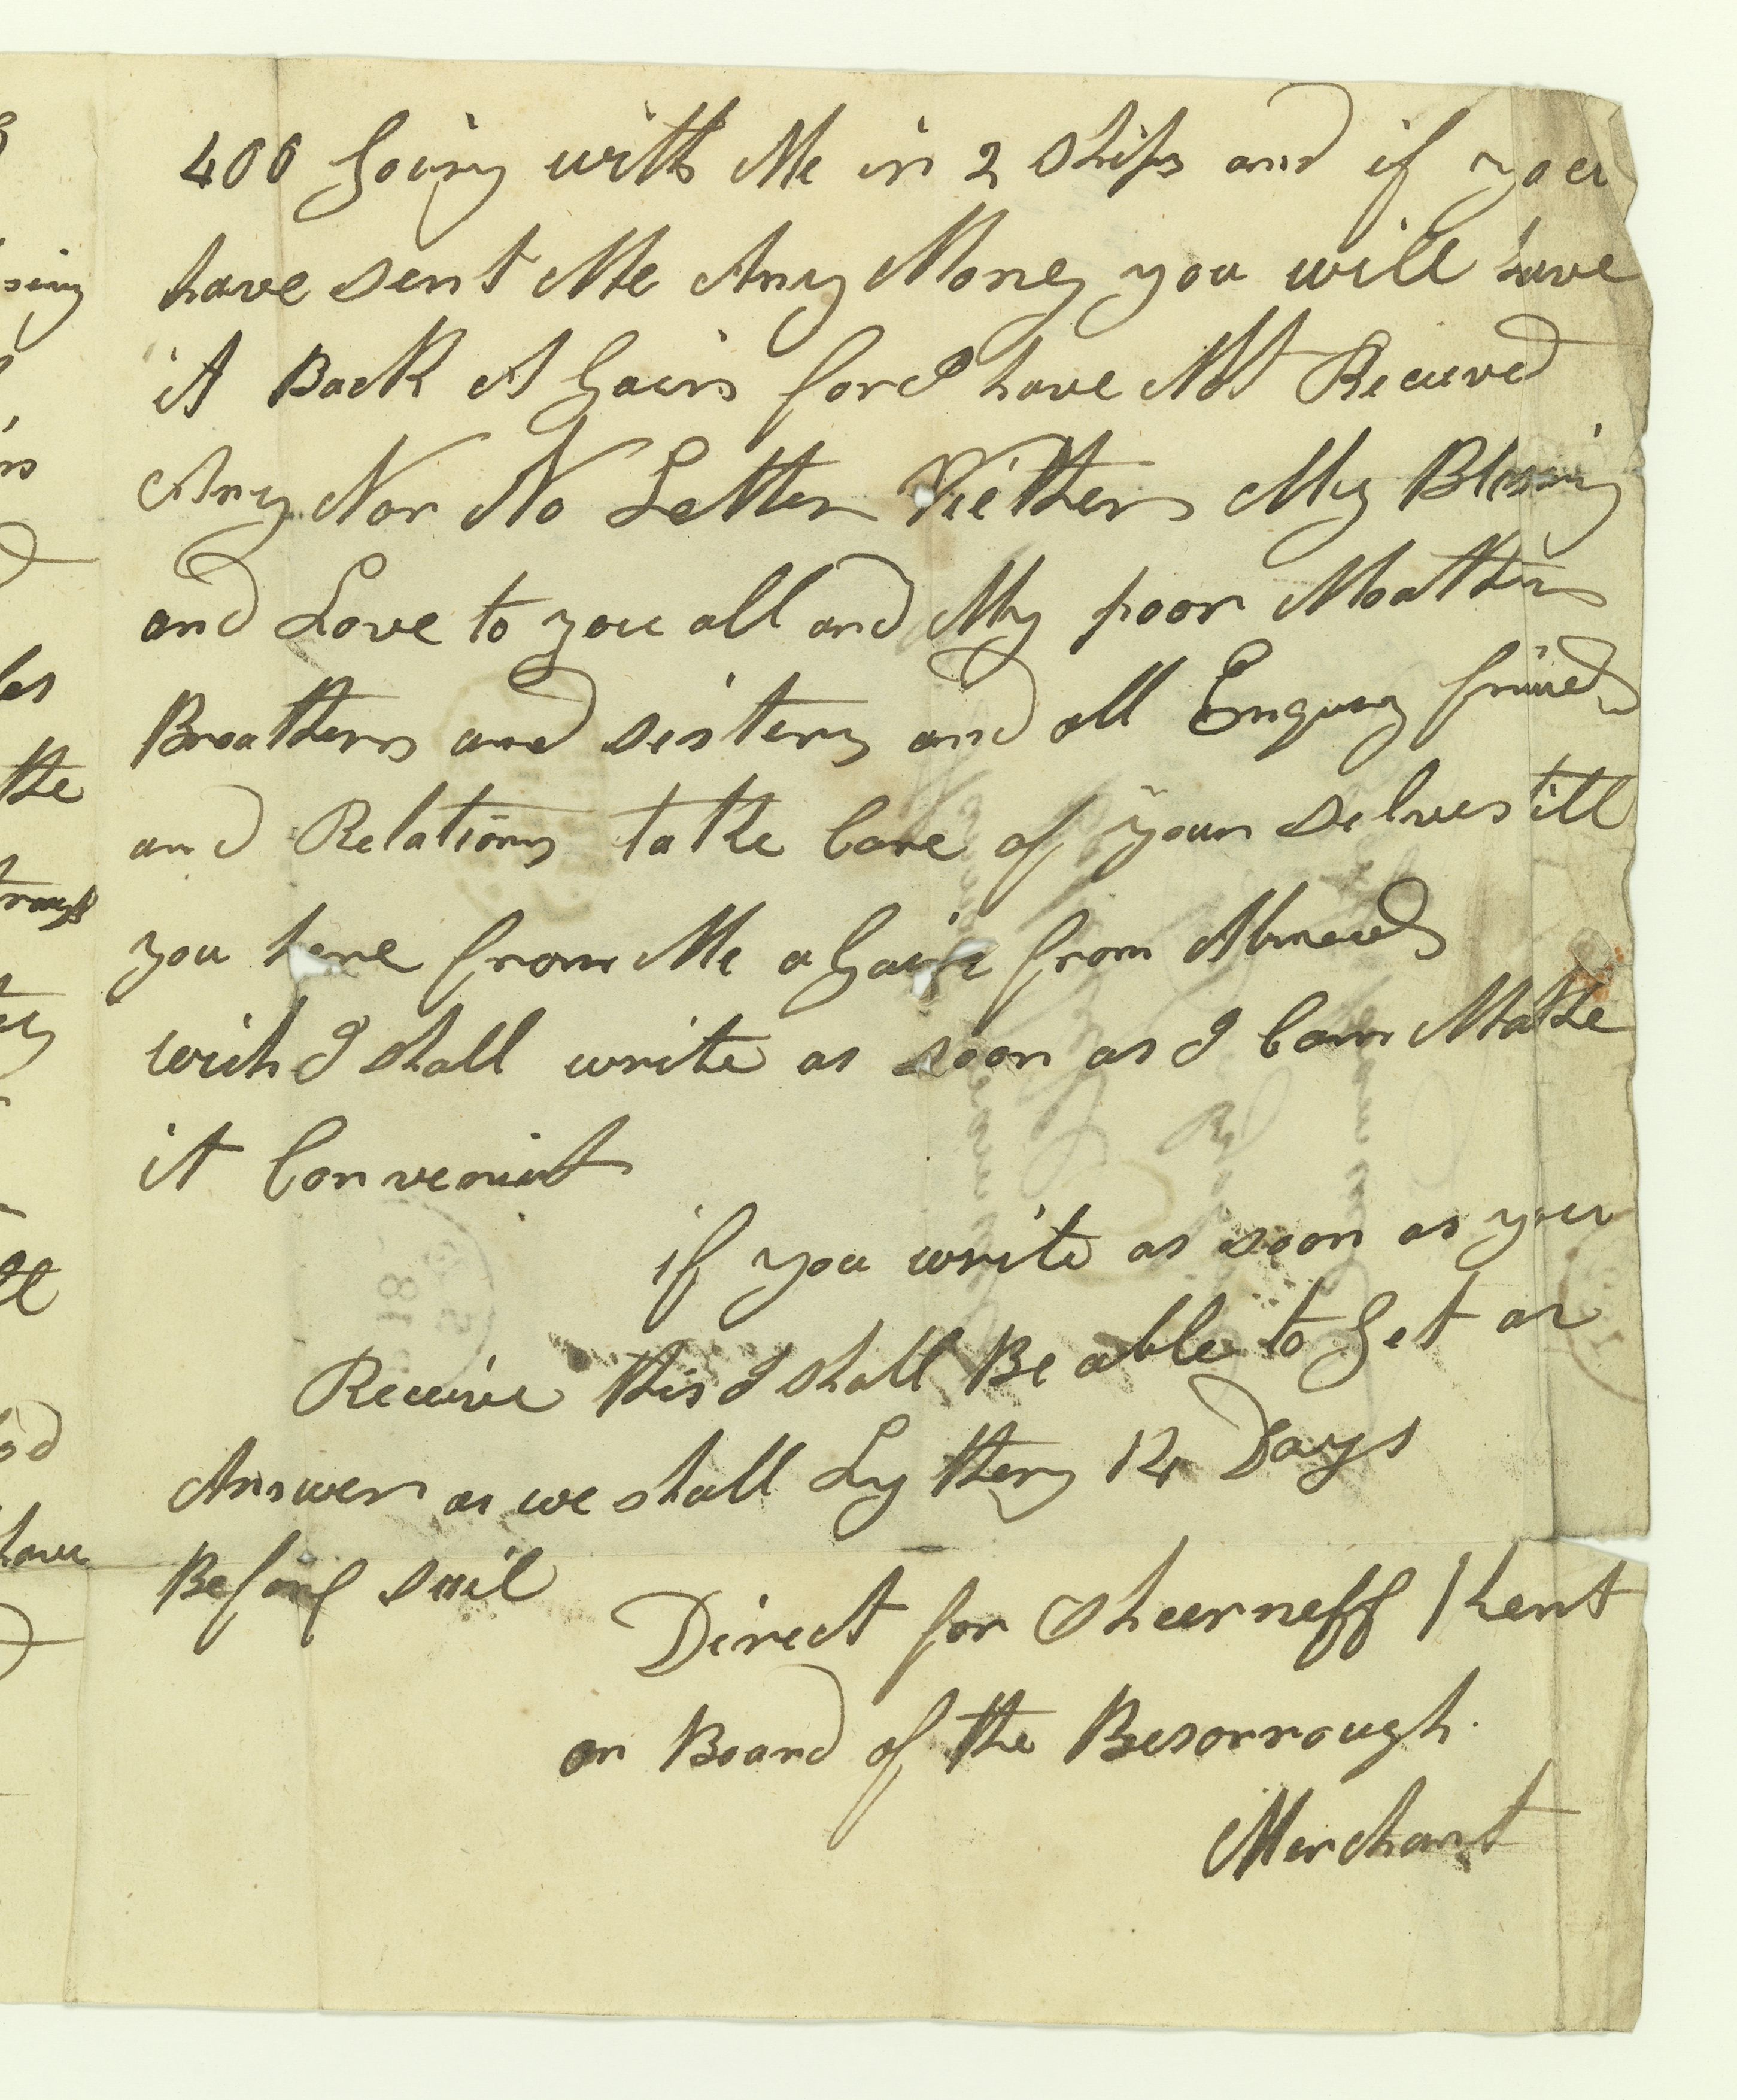 400 Going with Me in 2 Ships and if you
have sent Me Any Money you will have
it Back A Gain for I have Not Receeved
Any Nor No Letter Neither My Blessing
and Love to you all and My poor Moather
Broathers and sisters and all Enquray friends
and Relations take Care of your selves till
you here from Me a Gain from Abroad
wich I shall write as soon as I Can Make
it Convenint
if you write as soon as you
Receive this I shall Be able to Get an
Answer as we shall Ly ther 14 Days
Before sail
Direct for Sheerness Kent
on Board of the Besorrough
Merchant